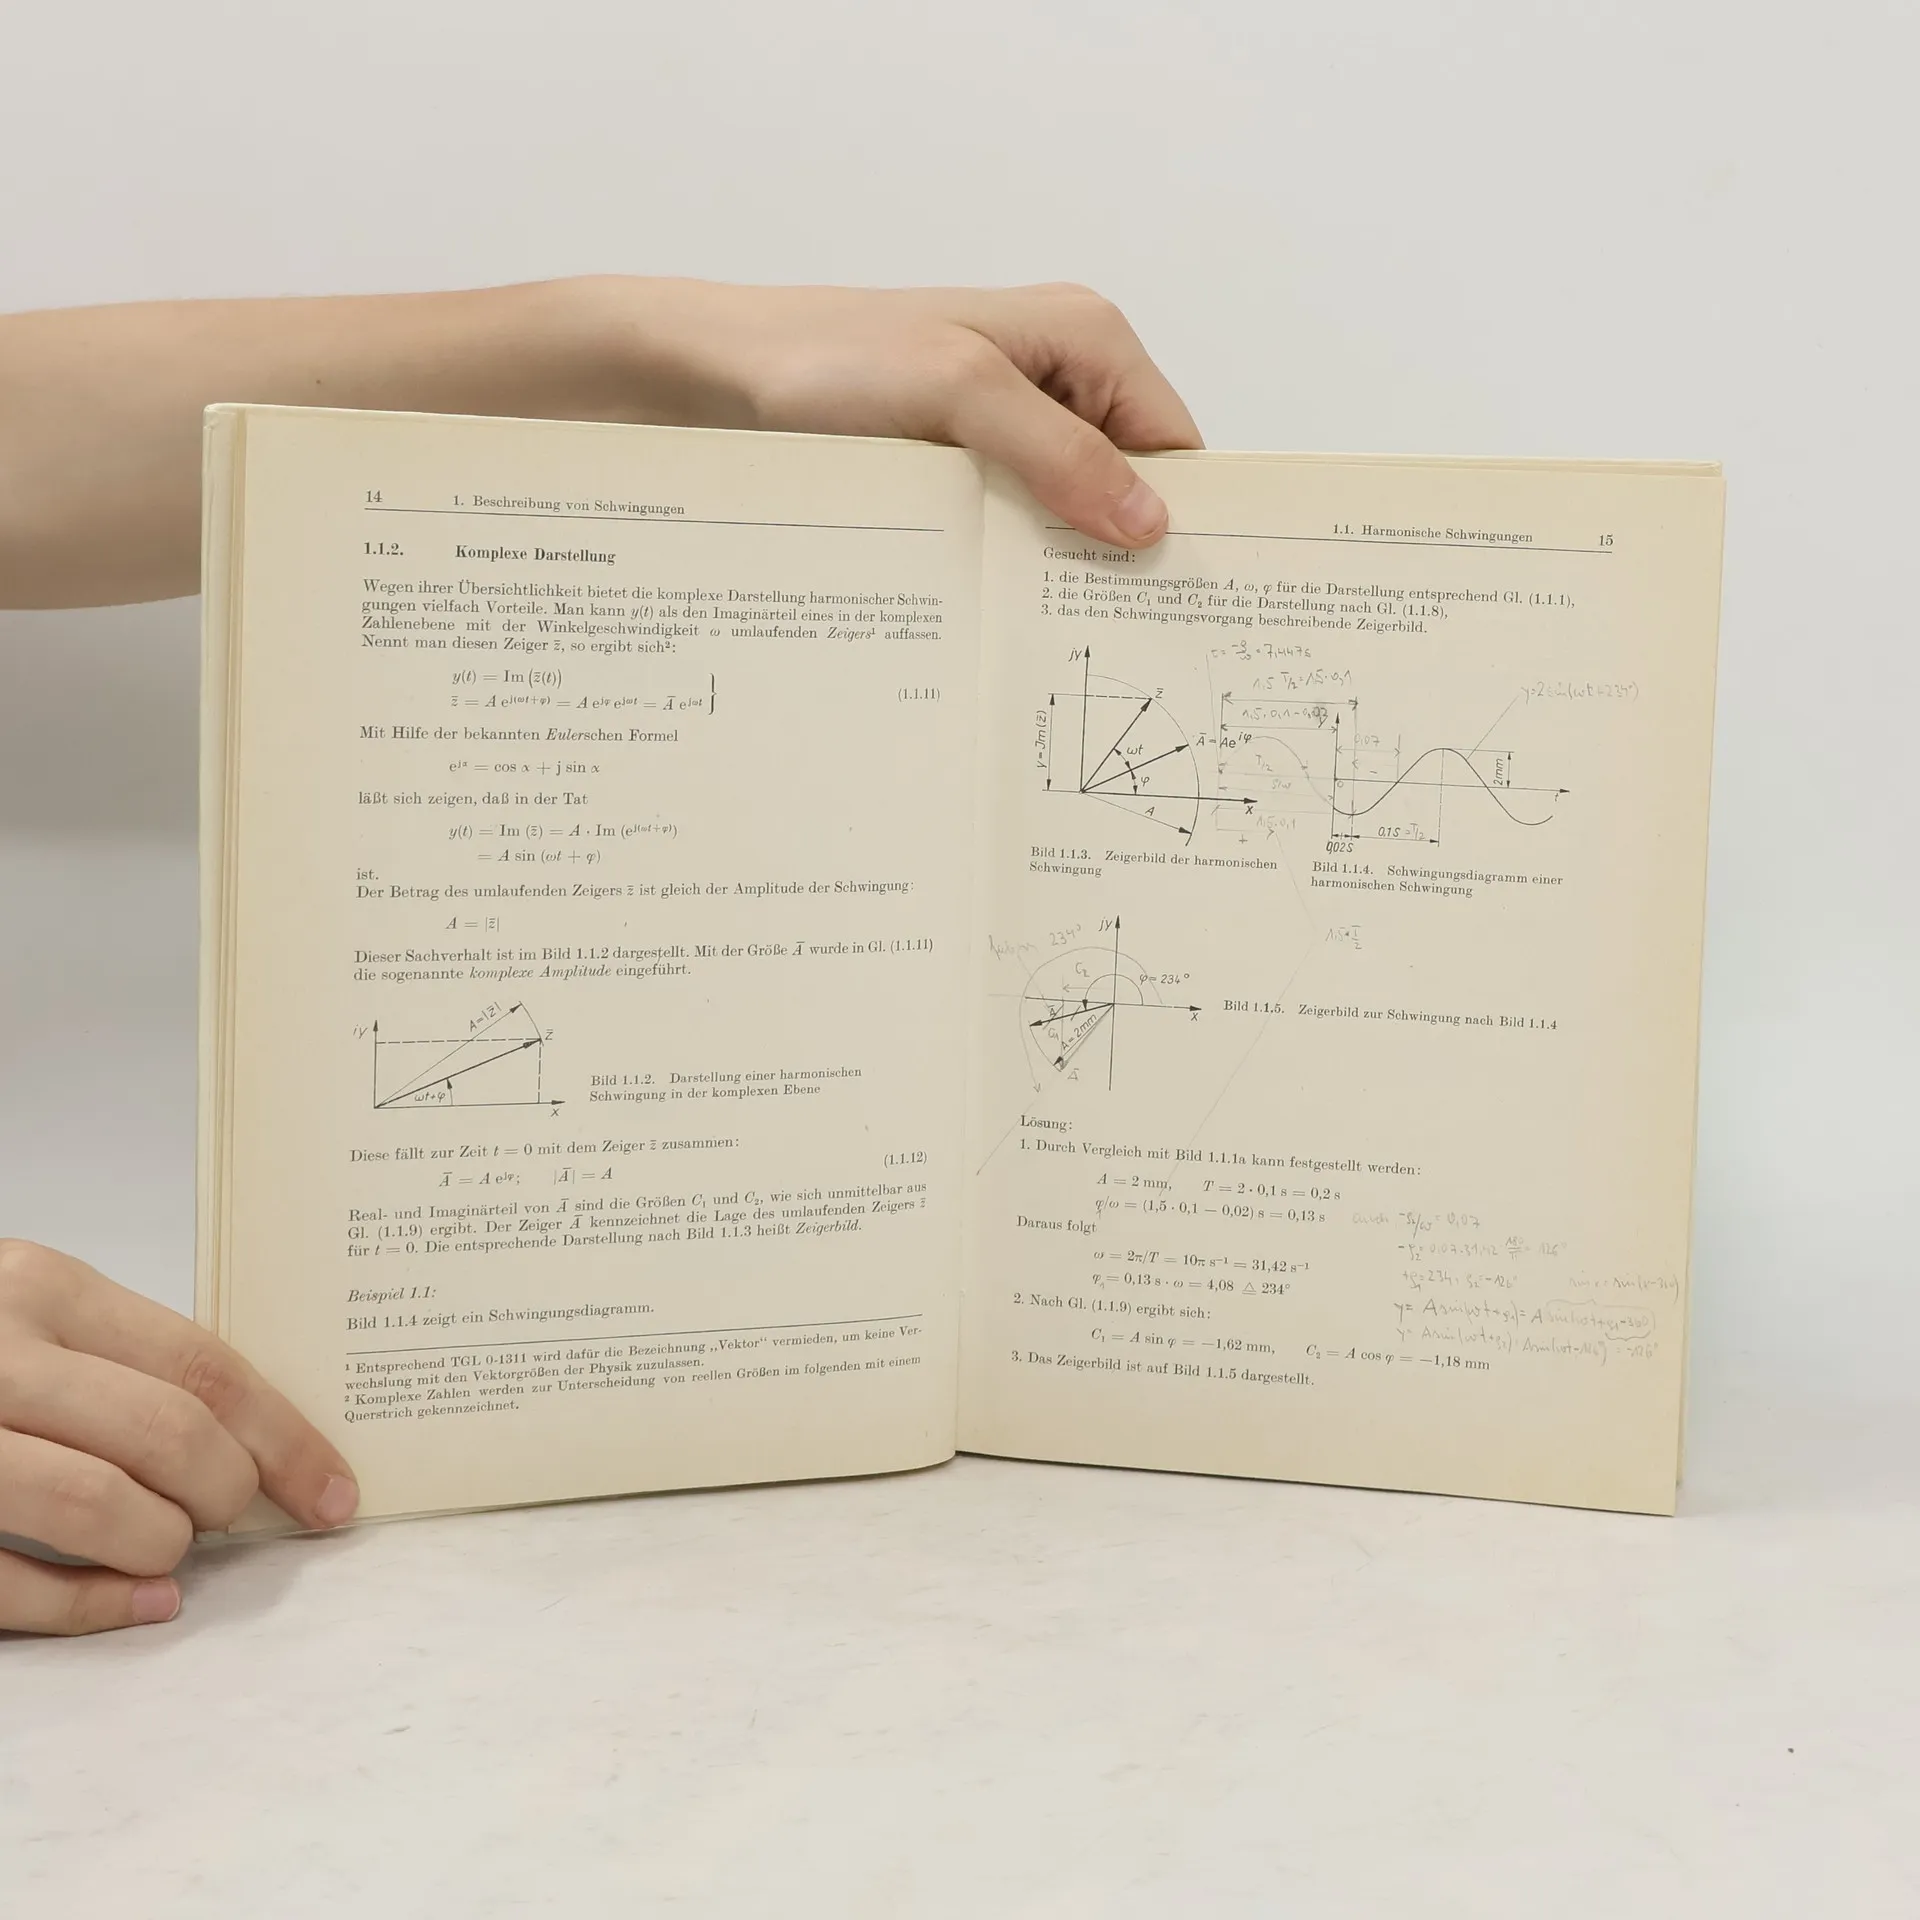 14 1. Beschreibung von Schwingungen
1.1.2. Komplexe Darstellung
Wegen ihrer Übersichtlichkeit bietet die komplexe Darstellung harmonischer Schwin-
gungen vielfach Vorteile. Man kann y(t) als den Imaginärteil eines in der komplexen
Zahlenebene mit der Winkelgeschwindigkeit ω umlaufenden Zeigers¹ auffassen.
Nennt man diesen Zeiger z̄, so ergibt sich²:
y(t) = Im (z̄(t))
z̄ = A e^{j(ωt+φ)} = A e^{jφ} e^{jωt} = Ā e^{jωt} (1.1.11)
Mit Hilfe der bekannten Eulerschen Formel
e^{jα} = cos α + j sin α
läßt sich zeigen, daß in der Tat
y(t) = Im (z̄) = A · Im (e^{j(ωt+φ)})
= A sin (ωt + φ)
ist.
Der Betrag des umlaufenden Zeigers z̄ ist gleich der Amplitude der Schwingung:
A = |z̄|
Dieser Sachverhalt ist im Bild 1.1.2 dargestellt. Mit der Größe Ā wurde in Gl. (1.1.11)
die sogenannte komplexe Amplitude eingeführt.
iy
A=|z̄|
z̄
ωt+φ
x
Bild 1.1.2. Darstellung einer harmonischen
Schwingung in der komplexen Ebene
Diese fällt zur Zeit t = 0 mit dem Zeiger z̄ zusammen:
Ā = A e^{jφ}; |Ā| = A (1.1.12)
Real- und Imaginärteil von Ā sind die Größen C₁ und C₂, wie sich unmittelbar aus
Gl. (1.1.9) ergibt. Der Zeiger Ā kennzeichnet die Lage des umlaufenden Zeigers z̄
für t = 0. Die entsprechende Darstellung nach Bild 1.1.3 heißt Zeigerbild.
Beispiel 1.1:
Bild 1.1.4 zeigt ein Schwingungsdiagramm.
¹ Entsprechend TGL 0-1311 wird dafür die Bezeichnung „Vektor“ vermieden, um keine Ver-
wechslung mit den Vektorgrößen der Physik zuzulassen.
² Komplexe Zahlen werden zur Unterscheidung von reellen Größen im folgenden mit einem
Querstrich gekennzeichnet.
1.1. Harmonische Schwingungen 15
Gesucht sind:
1. die Bestimmungsgrößen A, ω, φ für die Darstellung entsprechend Gl. (1.1.1),
2. die Größen C₁ und C₂ für die Darstellung nach Gl. (1.1.8),
3. das den Schwingungsvorgang beschreibende Zeigerbild.
jy
z̄
y=Jm(z̄)
Ā=Ae^{iφ}
ωt
φ
A
x
1,5 T/2=1,5·0,1
y=2sin(ωt+234°)
0,07
T/2
1,5·0,1
2mm
0
t
0,1S=T/2
0,02S
Bild 1.1.3. Zeigerbild der harmonischen
Schwingung
Bild 1.1.4. Schwingungsdiagramm einer
harmonischen Schwingung
1,5·T/2
234°
jy
C₂
φ=234°
x
C₁
A=2mm
Ā
Bild 1.1.5. Zeigerbild zur Schwingung nach Bild 1.1.4
Lösung:
1. Durch Vergleich mit Bild 1.1.1a kann festgestellt werden:
A = 2 mm, T = 2 · 0,1 s = 0,2 s
φ/ω = (1,5 · 0,1 − 0,02) s = 0,13 s
Daraus folgt
ω = 2π/T = 10π s⁻¹ = 31,42 s⁻¹
φ₁ = 0,13 s · ω = 4,08 ≙ 234°
2. Nach Gl. (1.1.9) ergibt sich:
C₁ = A sin φ = −1,62 mm, C₂ = A cos φ = −1,18 mm
3. Das Zeigerbild ist auf Bild 1.1.5 dargestellt.